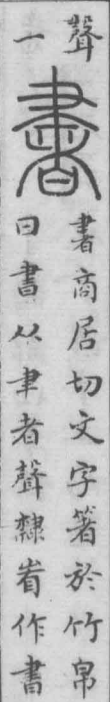 聲
一
書
書商居切文字箸於竹帛
曰書从聿者聲隸省作書